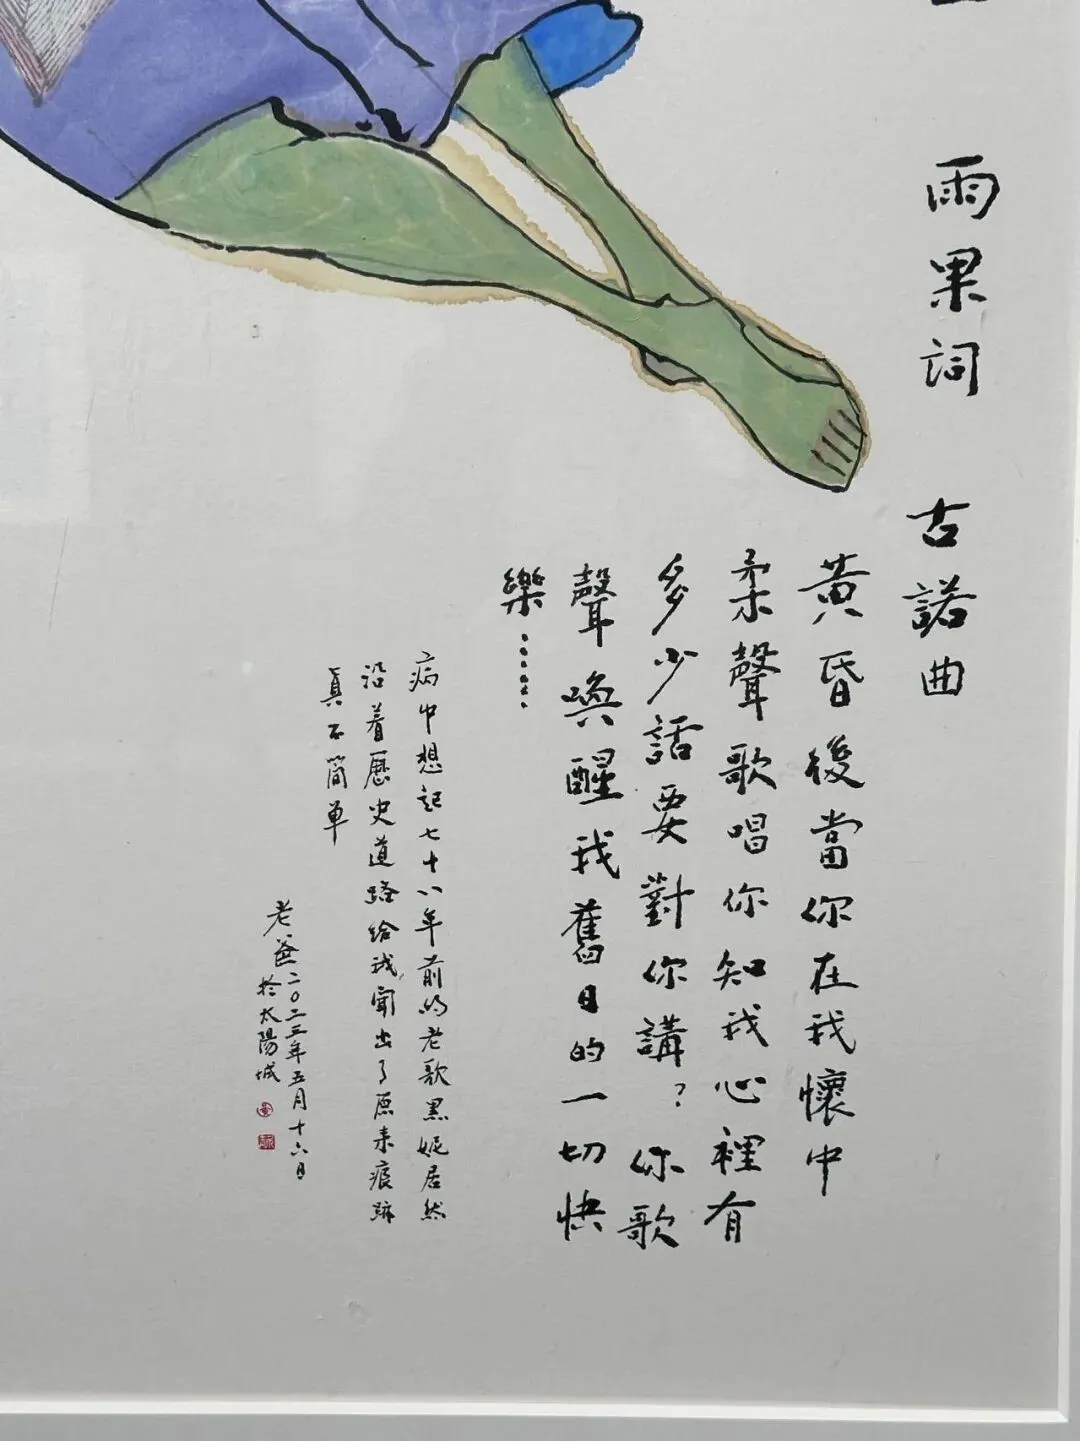 雨果詞 古諾曲
黃昏後當你在我懷中
柔聲歌唱你知我心裡有
多少話要對你講?你歌
聲喚醒我舊日的一切快
樂……
病中想起七十八年前的老歌黑妮居然
沿着歷史道路給我聞出了原来痕跡
真不簡单
老爸二〇二三年五月十六日
於太陽城